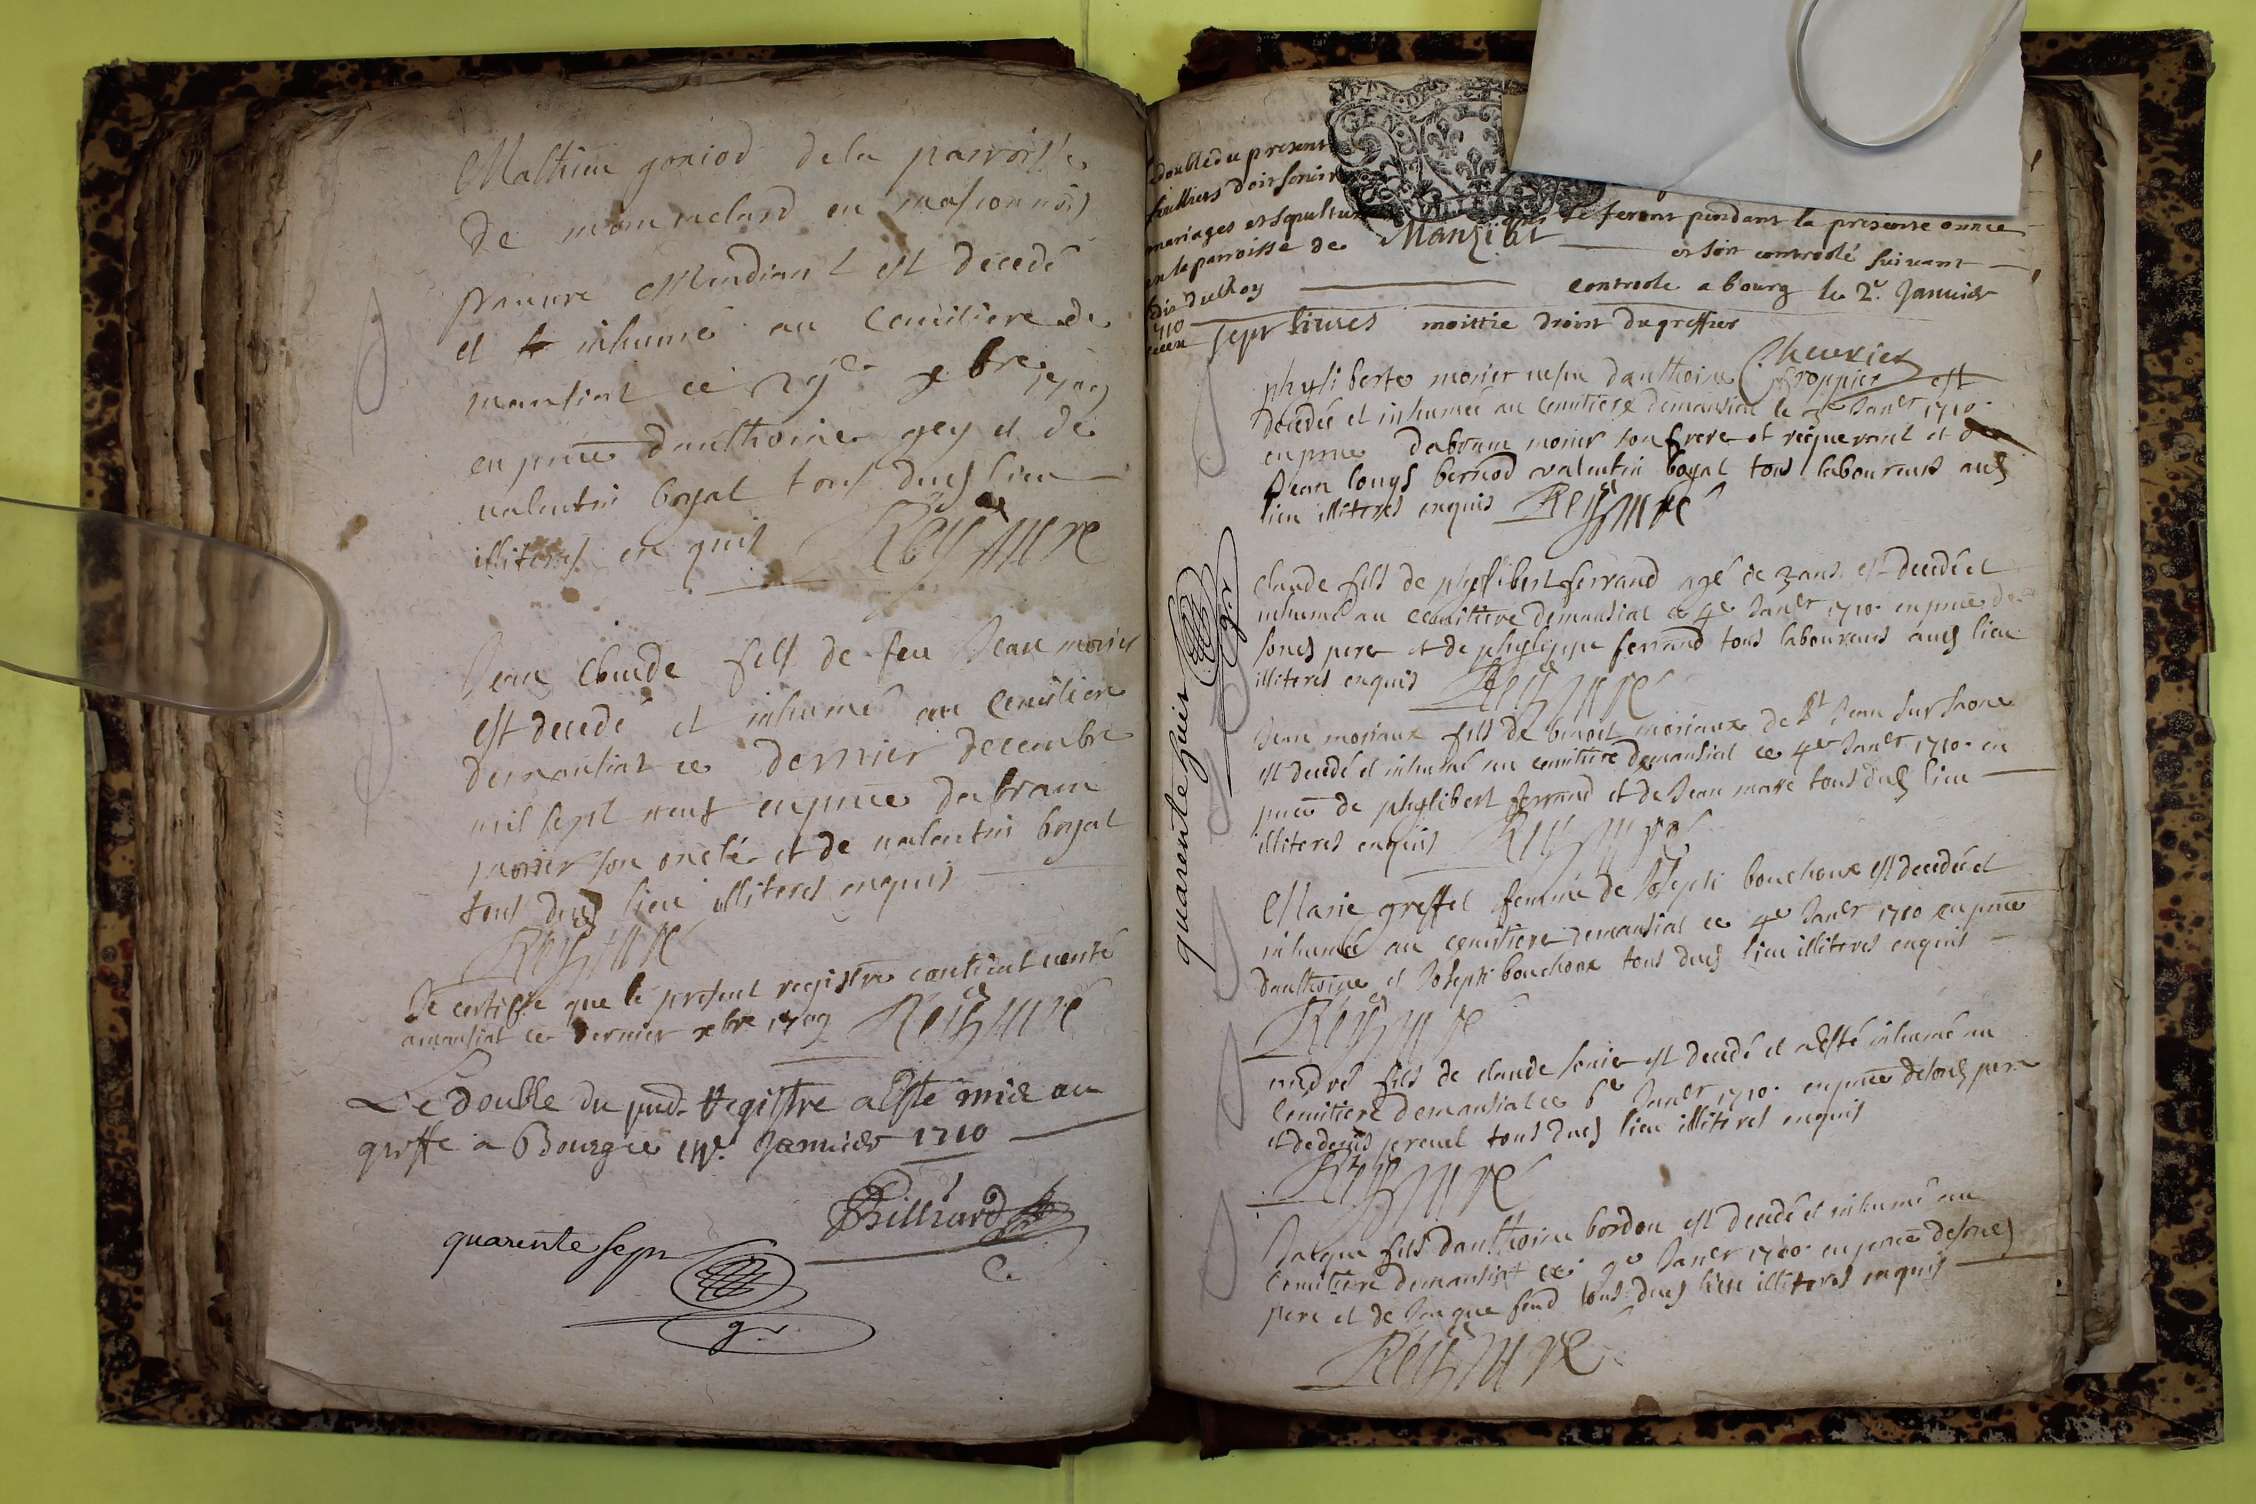 Mathieu goniod dela parroisse
de
pauure Mendiant est decedé
et inhumé au Cemitiere de
mansiat ce 29e xbre 1709
en pnce danthoine gey et de
valentin boyal tous dud lieu
illiteres enquis Rey cure
Jean Claude fils de feu Jean morier
est decedé et inhumé au Cemitiere
demansiat ce dernier decembre
mil sept neuf en pnce dabram
morier son oncle et de valentin boyal
tous dud lieu illiteres enquis
Rey cure
Je certifie que le present registre contient verité
amansiat ce dernier xbre 1709 Rey curé
Le double du pnd. Registre a Esté mis au
greffe a Bourg ce Januier 1710
Billiard
quarente sept
C.
g.r
double du present
mariages et sepultures se feront pendant la presente annee
en la parroisse de Manziat et soit controolé suivant
Edit du Roy controole a bourg le 2e. Januier
1710
sept liures moittie droit du greffier
Cheurier
phylliberte morier vefue danthoine est
decedée et inhumée au Cemitiere demansiat le Janer 1710.
en pnce dabram morier son frere et requerant et
Jean louys bernod valentin boyal tous laboureurs aud
lieu illiteres enquis Rey curé
quarente huit
g.r
Claude fils de phylibert ferrand agé de 3 ans est decedé et
inhumé au Cemitiere demansiat ce 4e Janer 1710. en pnce de
sond pere et de phylippe ferrand tous laboureurs aud lieu
illiteres enquis Rey curé
Jean moriaux fils de benoit moriaux de St Jean sur saone
est decedé et inhumé au Cemitiere demansiat ce 4e Janer 1710. en
pnce de phylibert ferrand et de Jean mare tous dud lieu
illiteres enquis Rey curé
Marie greffet femme de Joseph bouchoux est decedée et
inhumée au Cemitiere demansiat ce 4e Janer 1710 en pnce
danthoine et Joseph bouchoux tous dud lieu illiteres enquis
Rey curé
andré fils de claude est decedé et a Esté inhumé au
Cemitiere demansiat ce 6e Janer 1710. en pnce desond pere
et dedenis tous dud lieu illiteres enquis
Rey curé
Jacque fils danthoine bordou est decedé et inhumé au
Cemitiere demansiat ce 9e Janer 1710. en pnce desond
pere et de Jacque tous dud lieu illiteres enquis
Rey curé